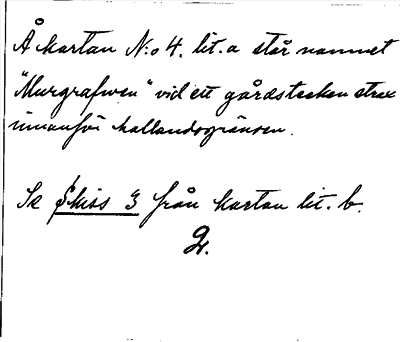 Å kartan N:o 4. lit. a står namnet
"Murgrafven" vid ett gårdstecken strax
innanför hallandsgränsen.
Se Skiss 3 från kartan lit. b.